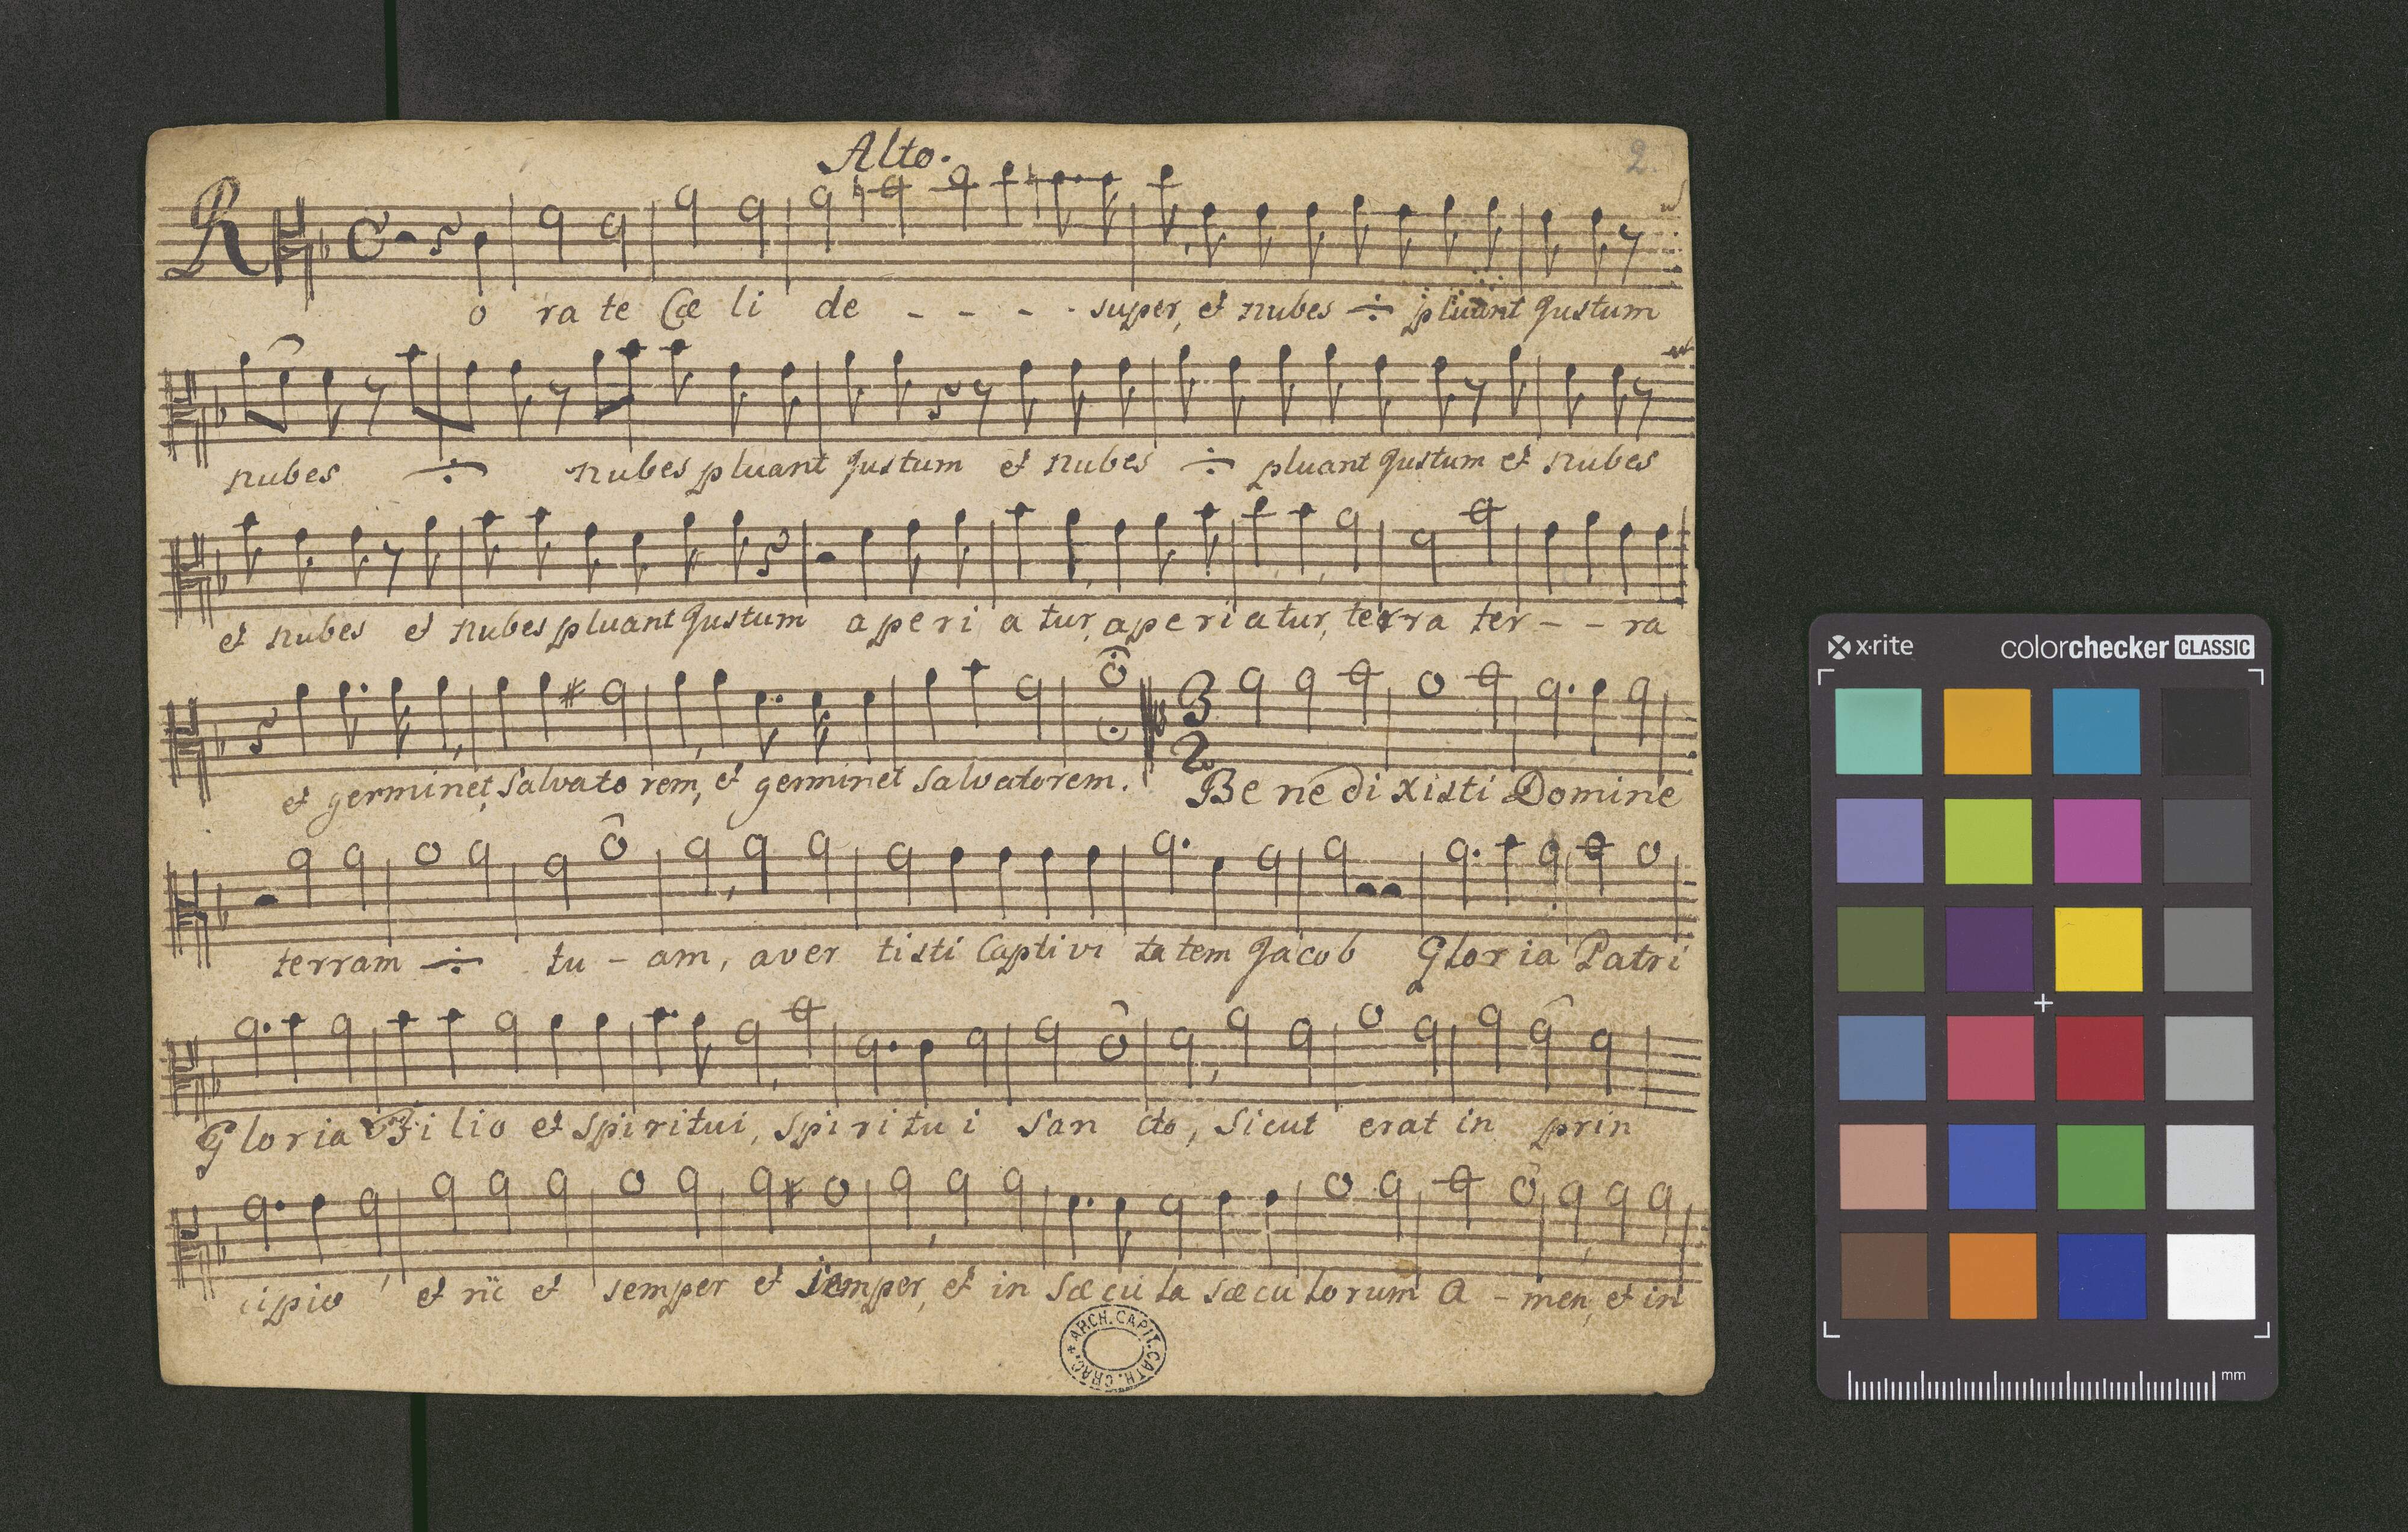 Alto.
2.
R
C
o ra te Cæ li de - - - - super, et nubes ÷ pluant Justum
nubes ÷ nubes pluant Justum et nubes ÷ pluant Justum et nubes
et nubes et nubes pluant Justum a pe ri a tur, a pe ri a tur, terra ter - - ra
et germinet, Salvato rem, et germinet Salvatorem. Be ne di xisti Domine
3
2
terram ÷ tu - am, aver tisti Captivi ta tem Jacob Gloria Patri
Gloria Filio et spiritui, spi ri tu i San cto, Sicut erat in prin
cipio et nc et semper et semper, et in Sæ cu la sæ cu lo rum A - men, et in
*ARCH.CAPIT.CATH.CRAC.
x·rite colorchecker CLASSIC
mm